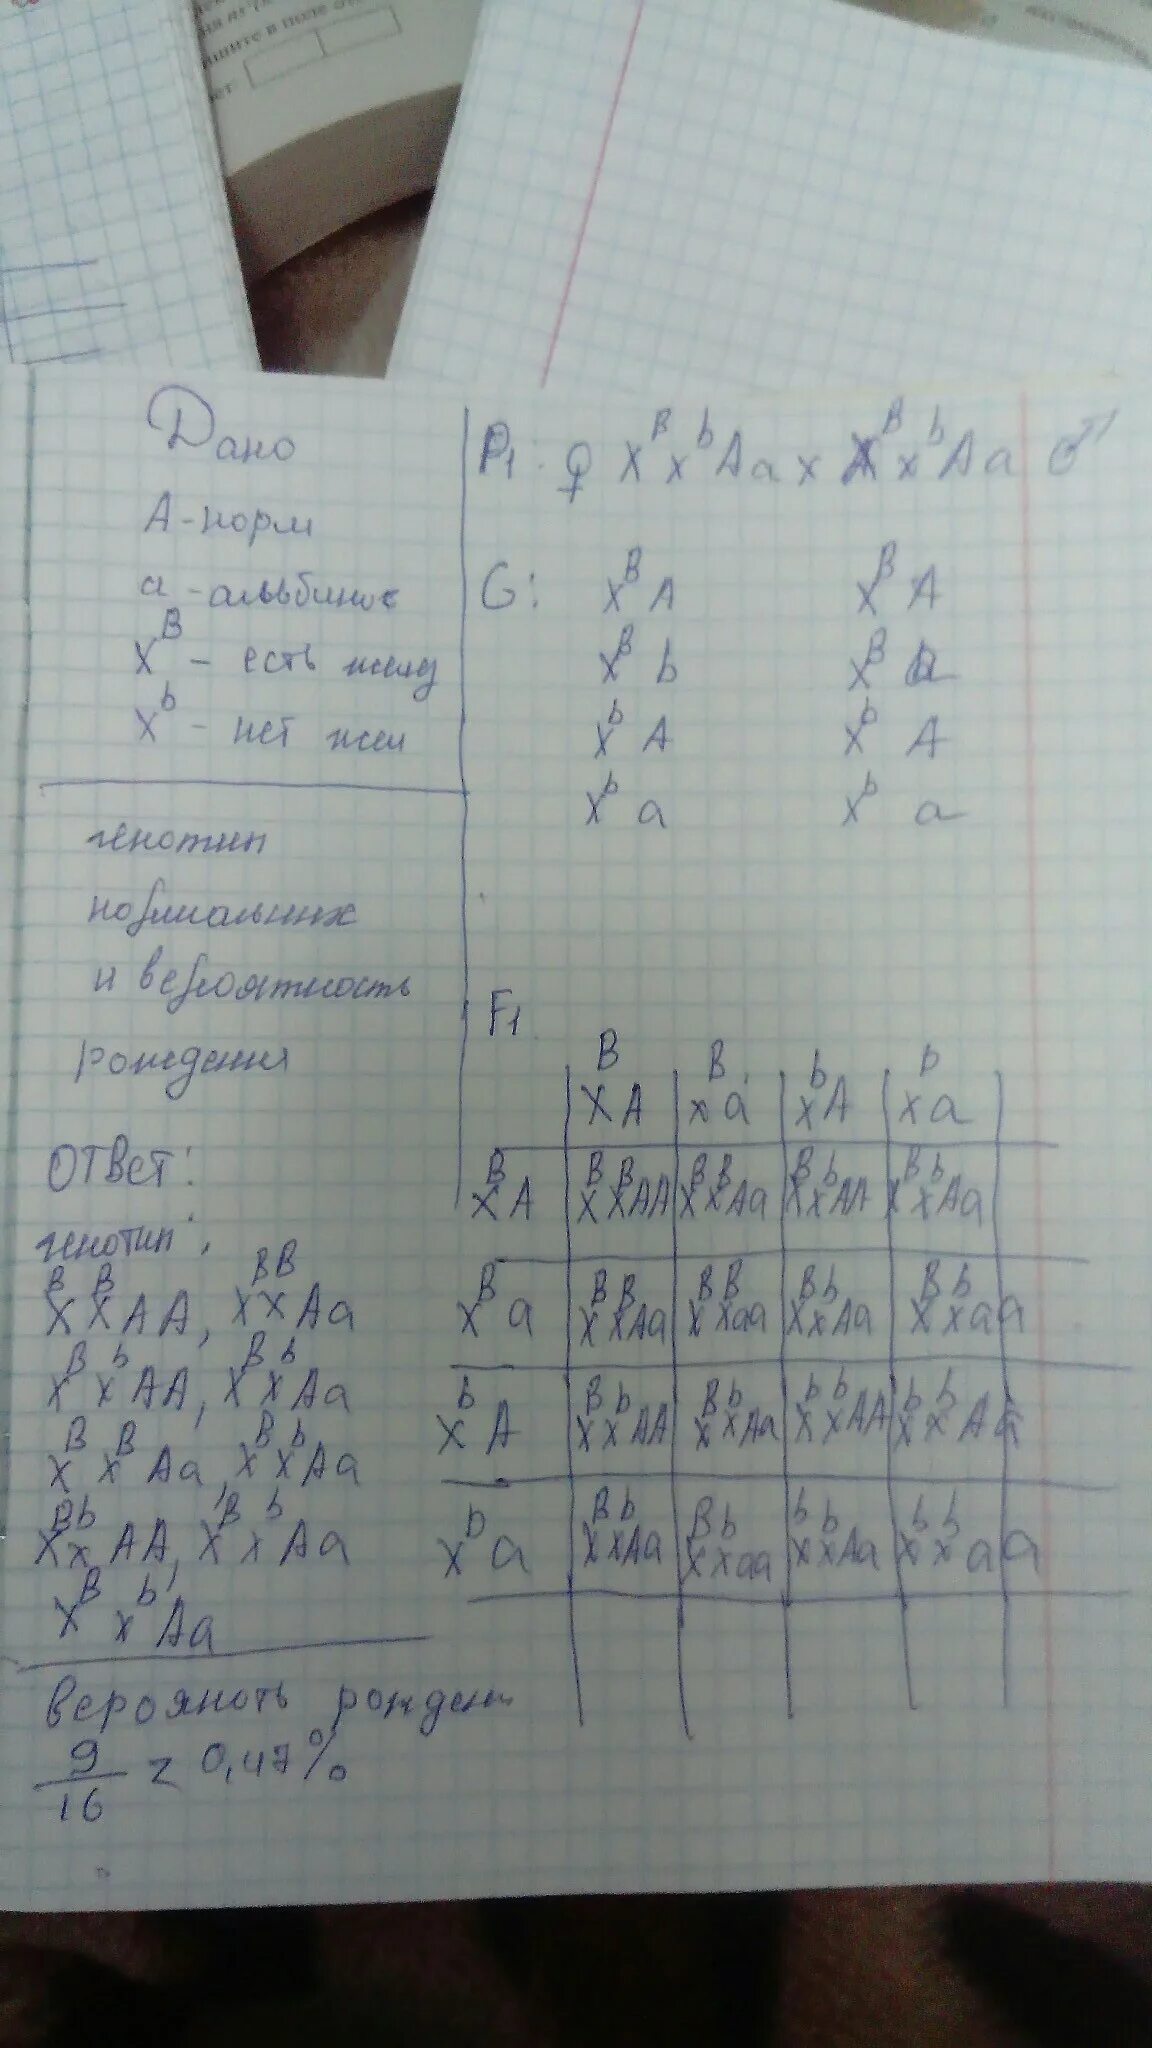 ишите в поле от
ет
Дано
А - норм
а - альбинос
X^B - есть желез
X^b - нет жел
генотип
нормальних
и вероятность
рождения
ответ:
генотип:
X^B X^B AA, X^B X^B Aa
X^B X^b AA, X^B X^b Aa
X^B X^B Aa, X^B X^b Aa
X^B X^b AA, X^B X^b Aa
X^B X^b Aa
вероянoть рожден
9/16 = 0,47%
P1: ♀ X^B X^b Aa x X^B X^b Aa ♂
G: X^B A X^B A
X^B b X^B a
X^b A X^b A
X^b a X^b a
F1
X^B A X^B a X^b A X^b a
X^B A X^B X^B AA X^B X^B Aa X^B X^b AA X^B X^b Aa
X^B a X^B X^B Aa X^B X^B aa X^B X^b Aa X^B X^b aa
X^b A X^B X^b AA X^B X^b Aa X^b X^b AA X^b X^b Aa
X^b a X^B X^b Aa X^B X^b aa X^b X^b Aa X^b X^b aa